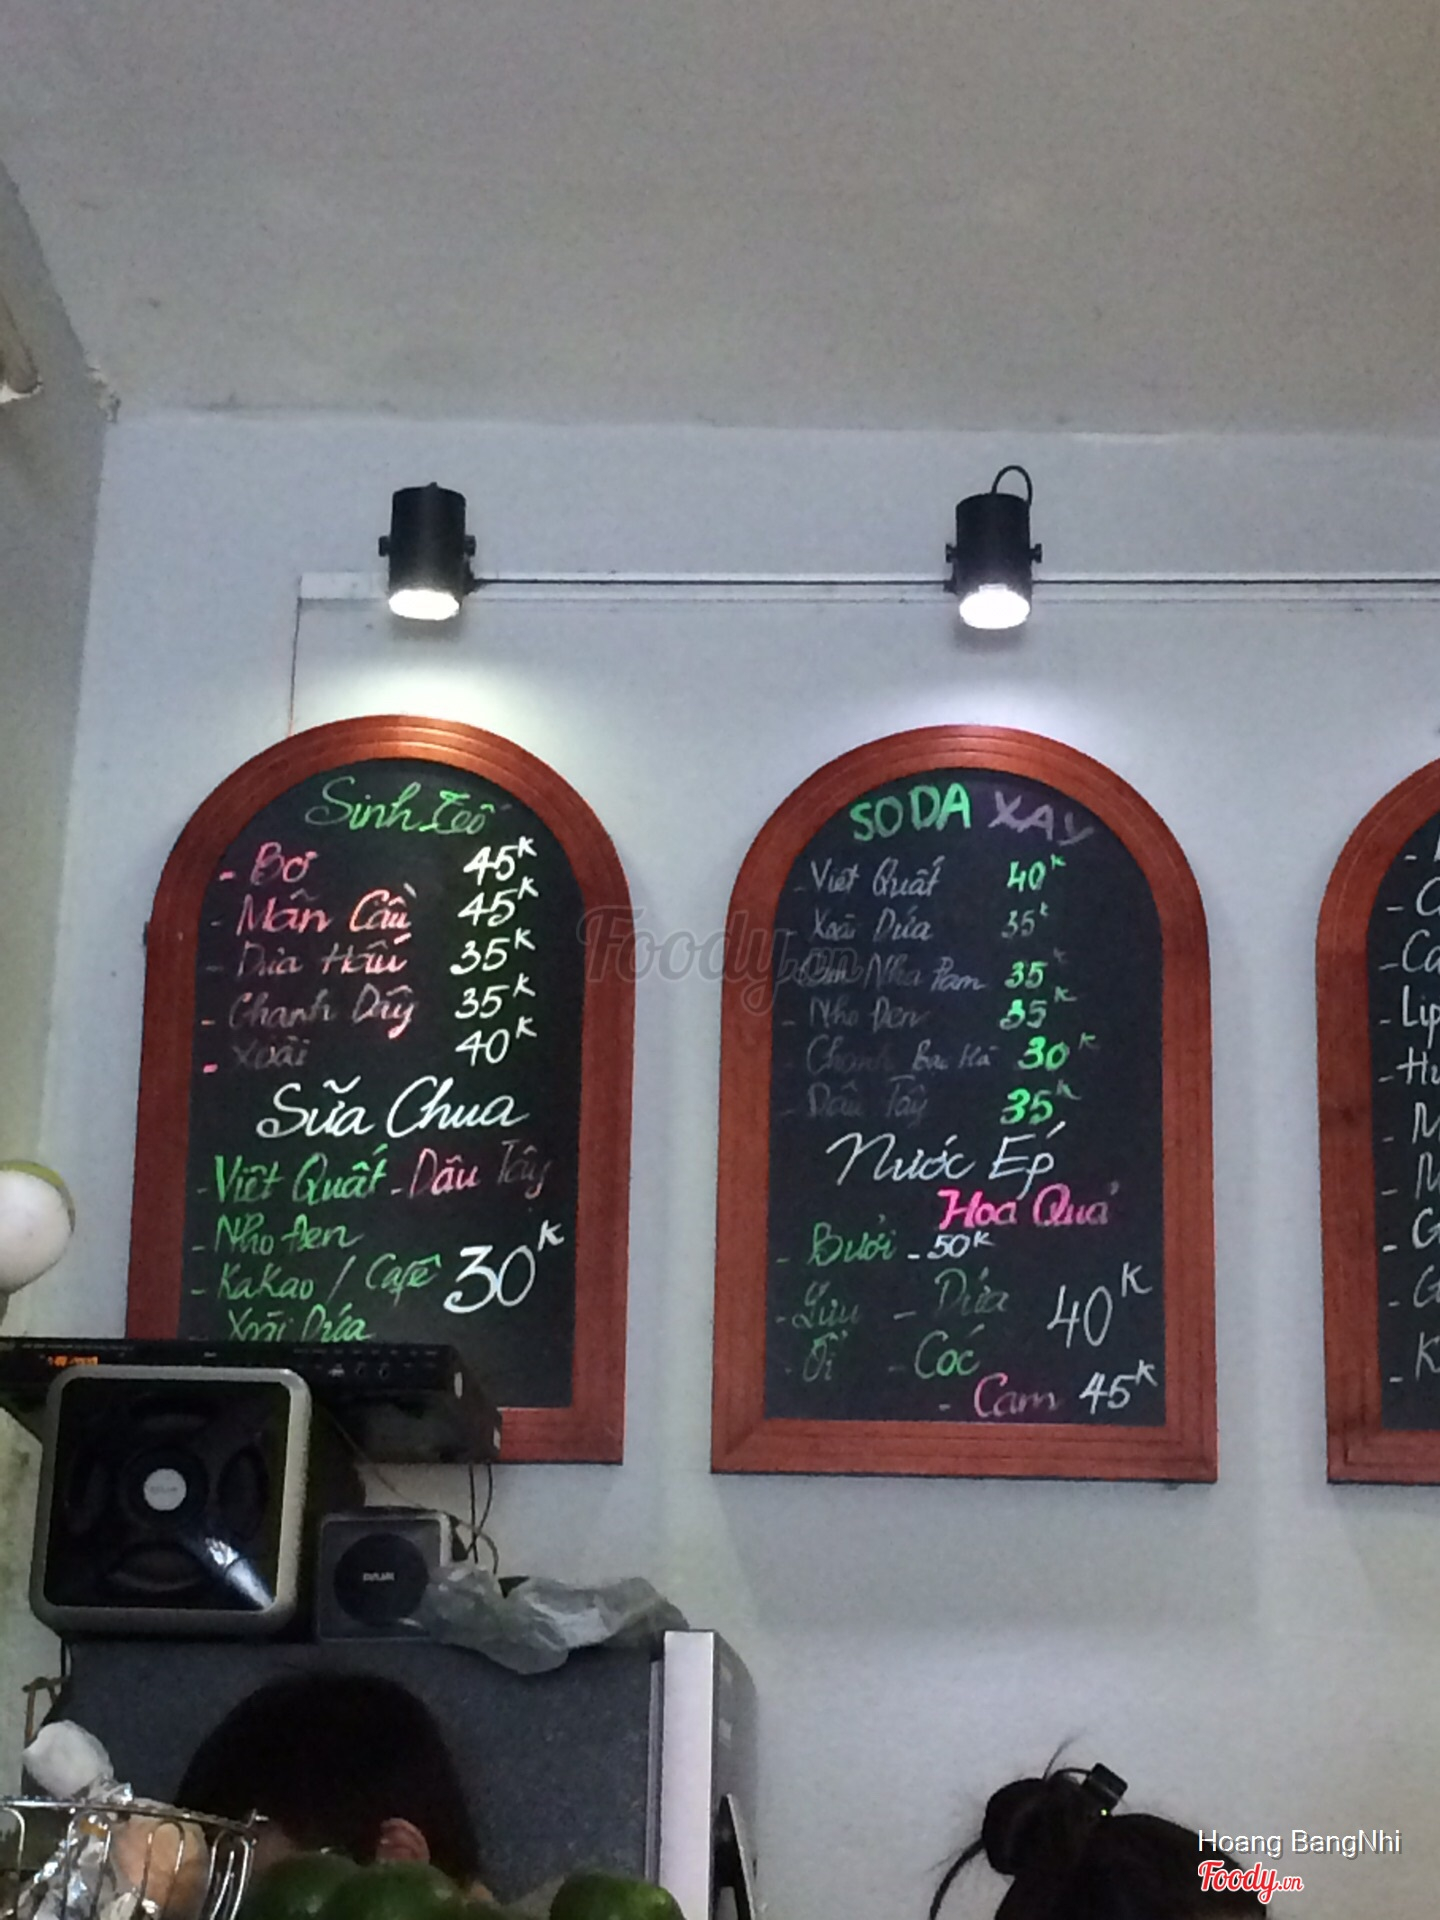 Sinh Tố
- Bơ 45K
- Mãn Cầu 45K
- Dưa Hấu 35K
- Chanh Dây 35K
- Xoài 40K
Sữa Chua
- Việt Quất - Dâu Tây
- Nho Đen
- KaKao / Café 30K
- Xoài Dứa
SODA XAY
- Việt Quất 40K
- Xoài Dứa 35K
Nha Đam 35K
- Nho Đen 35K
- Chanh Bạc Hà 30K
- Dâu Tây 35K
Nước Ép
Hoa Quả
- Bưởi - 50K
- Lựu - Dứa 40K
- Ổi - Cóc
- Cam 45K
- Lip
- Hu
Foody.vn
Hoang BangNhi
Foody.vn